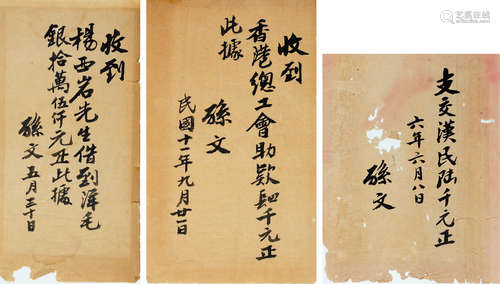 收到
楊西岩先生借到毛
銀拾萬伍仟元正此據
孫文 五月三十日
收到
香港總工會助欵肆千元正
此據
孫文
民國十一年九月廿一日
支交漢民陸千元正
六年六月八日
孫文